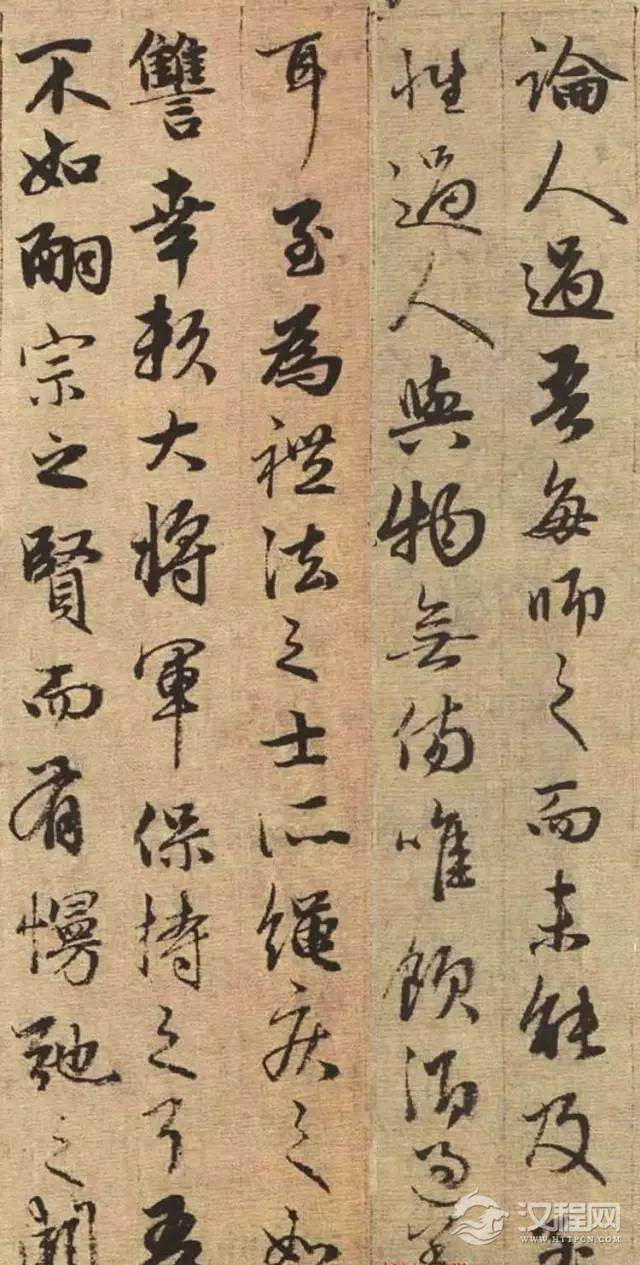 論人過吾每師之而未能及至
性過人與物無傷唯飲酒過差
耳至為禮法之士所繩疾之如
讐幸賴大將軍保持之耳吾
不如嗣宗之賢而有慢弛之闕
汉程网
WWW.HTTPCN.COM